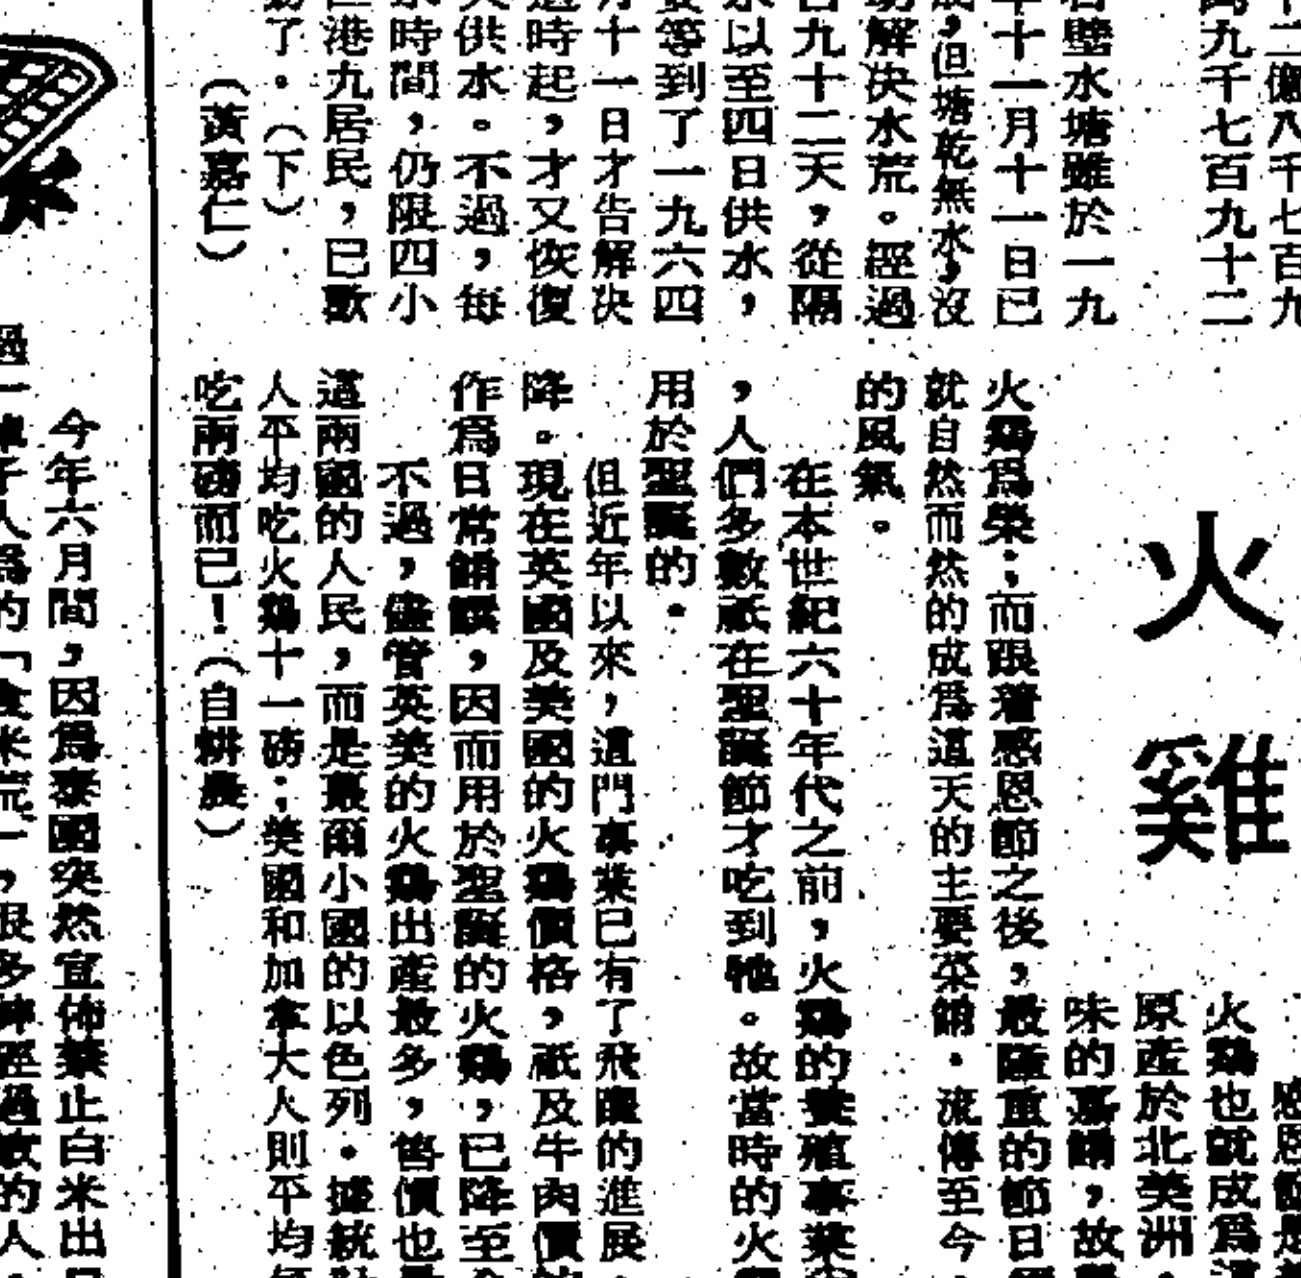 十二億八千七百九
萬九千七百九十二
石壁水塘雖於一九
年十一月十一日已
成，但塘乾無水，沒
解決水荒。經過
百九十二天，從隔
水以至四日供水，
要等到了一九六四
月十一日才告解決
這時起，才又恢復
天供水。不過，每
水時間，仍限四小
港九居民，已歡
了。（下）
（黃嘉仁）
火雞
感恩節是
火鷄也就成爲這
原產於北美洲，
味的嘉餚，故
火鷄爲榮；而跟着感恩節之後，最隆重的節日
就自然而然的成爲這天的主要菜餚。流傳至今，
的風氣。
在本世紀六十年代之前，火鷄的養殖事業
，人們多數祇在聖誕節才吃到牠。故當時的火
用於聖誕的。
但近年以來，這門事業已有了飛躍的進展，
降。現在英國及美國的火鷄價格，祇及牛肉價
作爲日常餚饌，因而用於聖誕的火鷄，已降至
不過，儘管英美的火鷄出產最多，售價也
這兩國的人民，而是蕞爾小國的以色列。據統計
人平均吃火鷄十一磅；美國和加拿大人則平均
吃兩磅而已！（自耕農）
今年六月間，因爲泰國突然宣佈禁止白米出
過一陣子人爲的「食米荒」，很多神經過敏的人